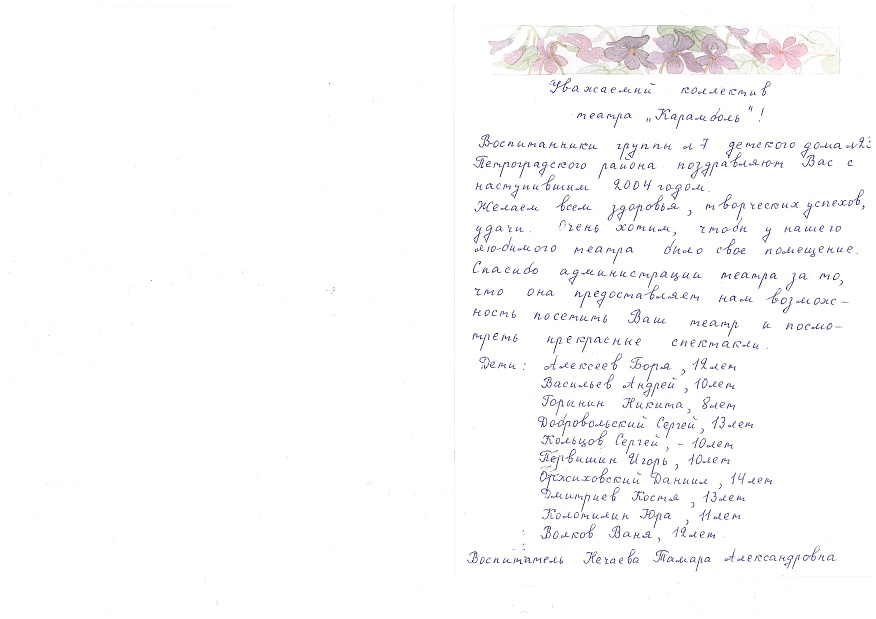 Уважаемый коллектив
театра „Карамболь"!
Воспитанники группы №7 детского дома №23
Петроградского района поздравляют Вас с
наступившим 2004 годом.
Желаем всем здоровья, творческих успехов,
удачи. Очень хотим, чтобы у нашего
любимого театра было свое помещение.
Спасибо администрации театра за то,
что она предоставляет нам возмож-
ность посетить Ваш театр и посмо-
треть прекрасные спектакли.
Дети: Алексеев Боря, 12лет
Васильев Андрей, 10лет
Горынин Никита, 8лет
Добровольский Сергей, 13лет
Кольцов Сергей, - 10лет
Первишин Игорь, 10лет
Оржиховский Даниил, 14лет
Дмитриев Костя, 13лет
Колотилин Юра, 11лет
Волков Ваня, 12лет.
Воспитатель Нечаева Тамара Александровна